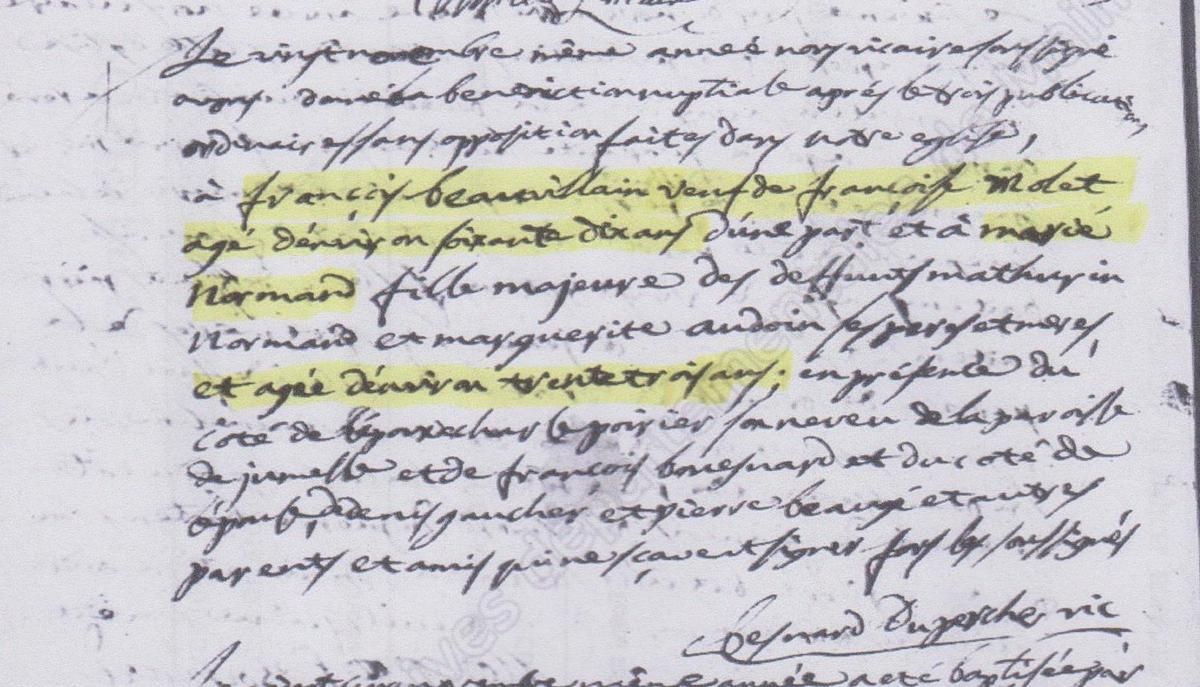 Le vingt novembre même année nous vicaire soussigné
avons donné la benediction nuptiale après le trois publications
ordinaires sans opposition faites dans notre eglise,
à françois beauvillain veuf de françoise Molet
agé d'énviron soixante dix ans d'úne part et à marie
Normand fille majeure des deffunts mathurin
Normand et marguerite audoin ses peres et meres
et agée d'énviron trente trois ans; en présence du
côté de l'époux le poirier son neveu de la paroisse
de jumelle et de françois bouesnard et du coté de
l'épouse, de denis gaucher et pierre beaugé et autres
parents et amis qui ne sçavent signer fors les soussignés
besnard Duperche vic
même année a eté baptisée par